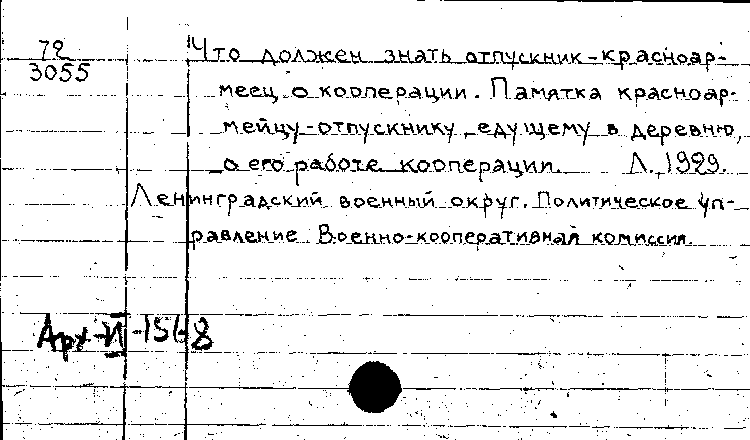 72
3055
Что должен знать отпускник-красноар-
меец о кооперации. Памятка красноар-
мейцу-отпускнику, едущему в деревню,
о его работе кооперации. Л., 1929.
Ленинградский военный округ. Политическое уп-
равление. Военно-кооперативная комиссия.